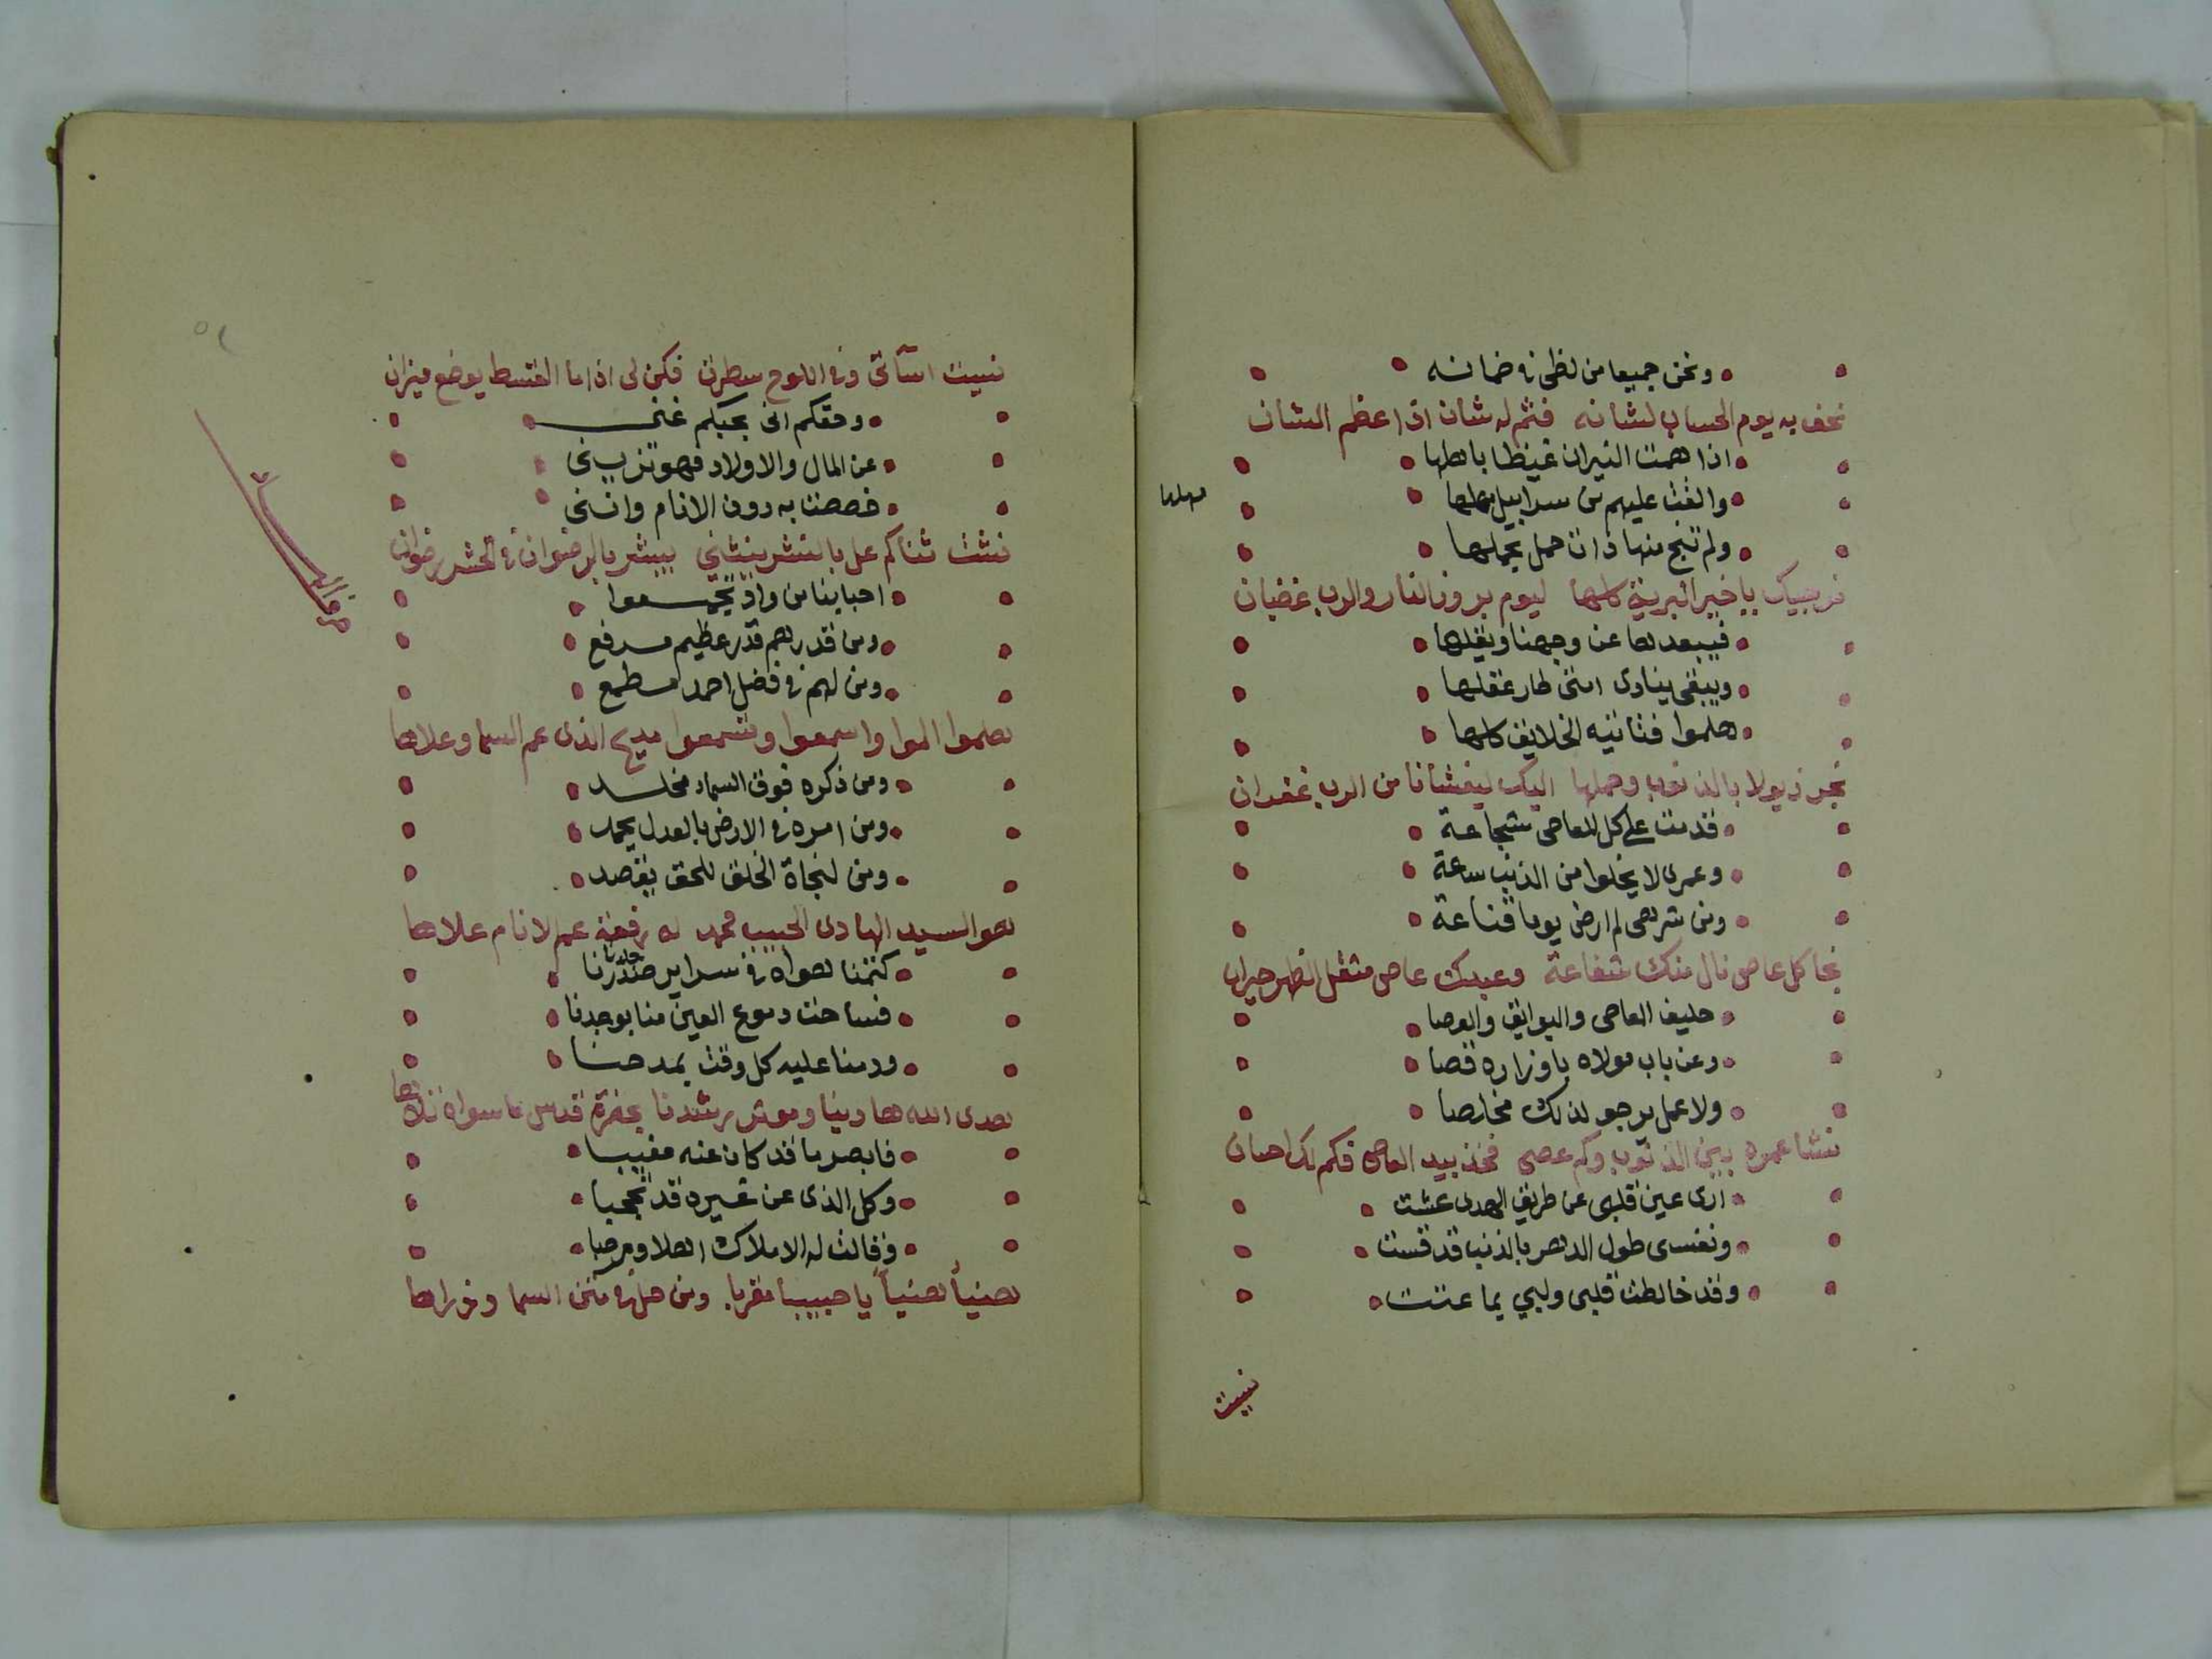 ونحن جميعا من لظى في ضمانه
نحف به يوم الحساب لشانه فثم له شان اذا عظم الشان
اذا همت النيران غيظا باهلها
والقت عليهم من سرابيل مهلها
مهلها
ولم تنج منها ذات حمل بحملها
نريبيك يا خير البرية كلها ليوم بروز النار والرب غضبان
فيبعدها عن وجهنا ويغلها
ويبقى ينادى امتى طار عقلها
هلموا فتاتيه الخلايق كلها
نجر ذيولا بالذنوب وحملها اليك ليغشانا من الرب غفران
قدمت على كل المعاصى شجاعة
وعمرى لا يخلوا من الذنب ساعة
ومن شرهى لم ارض يوما قناعة
نجا كل عاص نال منك شفاعة وعبدك عاص مثقل الظهر حيران
حليف المعاصى والبوايق والعصا
وعن باب مولاه باوزاره قصا
ولا عمل يرجو لذلك مخلصا
نشا عمره بين الذنوب وكم عصى فخذ بيد العاصى فكم لك احسان
ارى عين قلبى عن طريق الهدى عشت
ونفسى طول الدهر بالذنب قد قست
وقد خالطت قلبى ولبي بما عنت
نسيت
نسيت اسآتى وفى اللوح سطرت فكن لى اذا ما القسط يوضع ميزان
وحقكم انى بحبكم غنى
عن المال والاولاد فهو تزيننى
خصصت به دون الانام واننى
نشت ثناكم عل بالنشر ينثنى يبشر بالرضوان فى الحشر رضوان
احبابنا من واد تجمعوا
ومن قدرهم قدر عظيم مرفع
ومن لهم فى فضل احمد مطمع
هلموا الموا واسمعوا وتسمعوا مديح الذى عم السما وعلاها
ومن ذكره فوق السماء مخلد
ومن امره فى الارض بالعدل يحمد
ومن لنجاة الخلق للحق يقصد
هو السيد الهادى الحبيب محمد له رفعة عم الانام علاها
كتمنا هواه فى سراير صدرنا
فساحت دموع العين منا بوجدنا
ودمنا عليه كل وقت بمدحنا
هدى الله هادينا ومرشدنا بحضرة قدس ما سواه
فابصر ما قد كان عنه مغيبا
وكل الذى عن غيره قد تحجبا
وقالت له الاملاك اهلا ومرحبا
هنيأ هنيأ يا حبيبا مقربا ومن حل فى متن السما وذراها